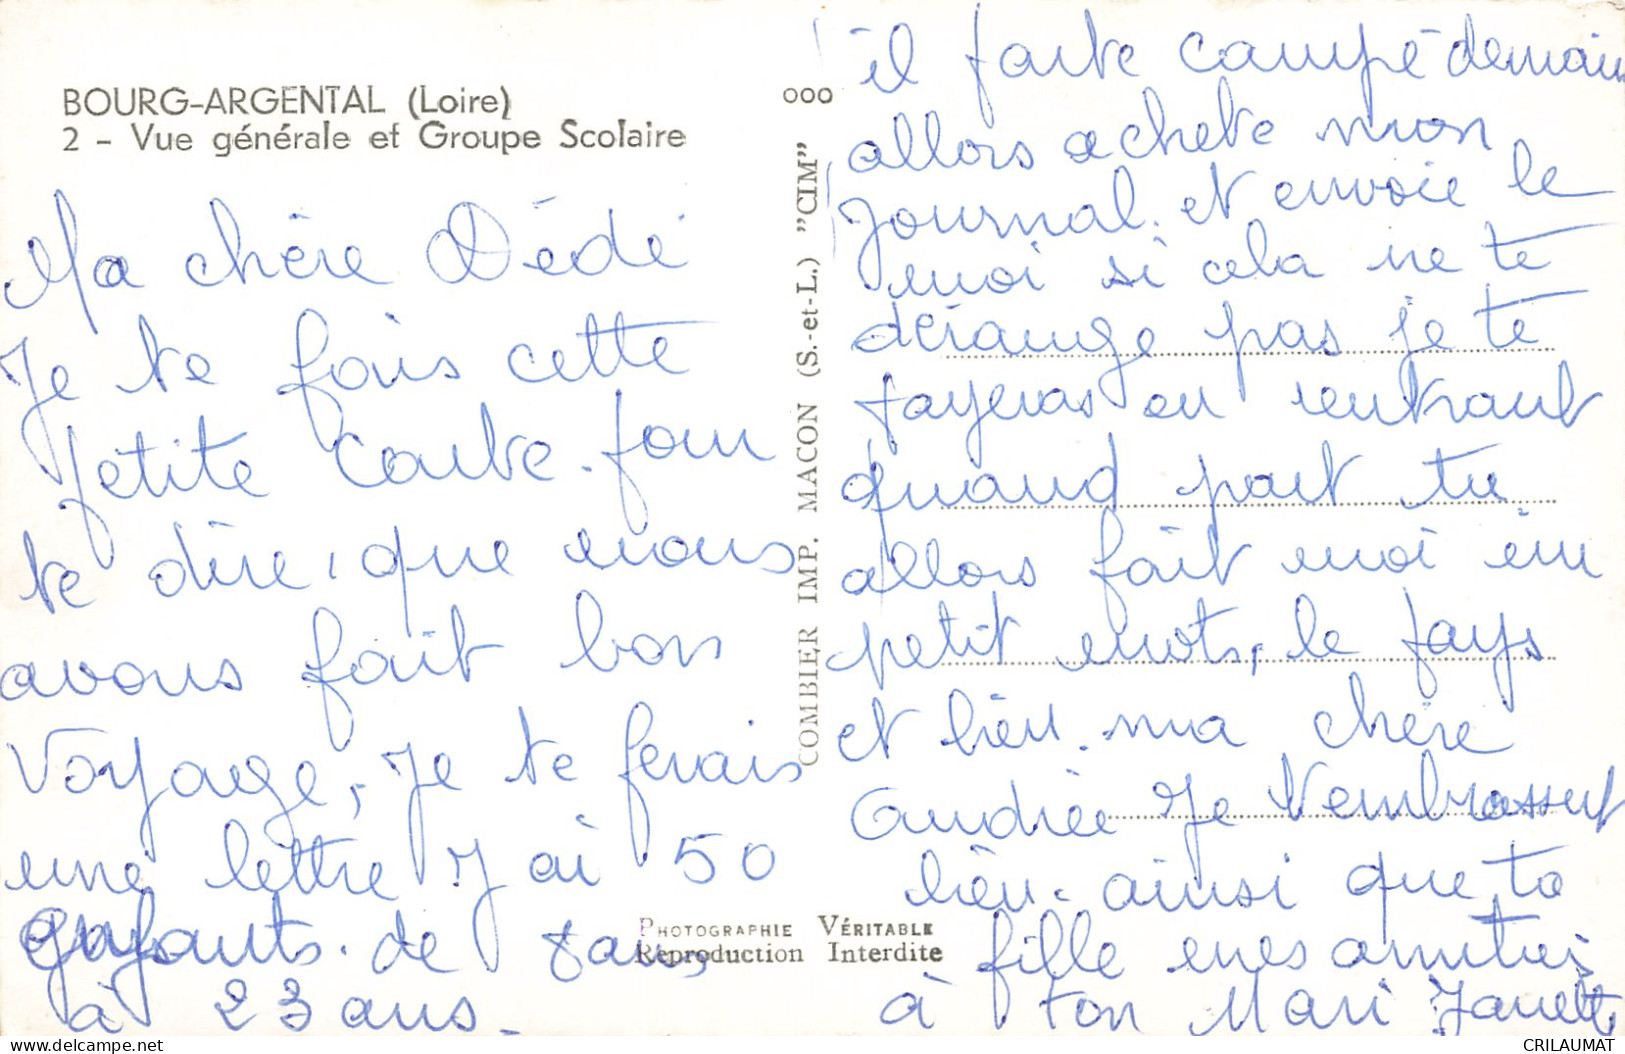 BOURG-ARGENTAL (Loire)
2 - Vue générale et Groupe Scolaire
Ma chère Dédé
Je te fais cette
petite carte. pour
te dire, que nous
avons fait bon
voyage, Je te ferais
une lettre J ai 50
Enfants. de 8 ans,
à 23 ans.
000
COMBIER IMP. MACON (S.-et-L.) "CIM"
PHOTOGRAPHIE VÉRITABLE
Reproduction Interdite
il parte campé demain
allors achete mon
Journal. et envoie le
moi si cela ne te
dérange pas je te
payeras en rentrant
quand part tu
allors fait moi un
petit mots, le pays
et bien. ma chère
Andrée Je t'embrasse
bien. ainsi que ta
fille mes amitiés
à ton Mari
CRILAUMAT